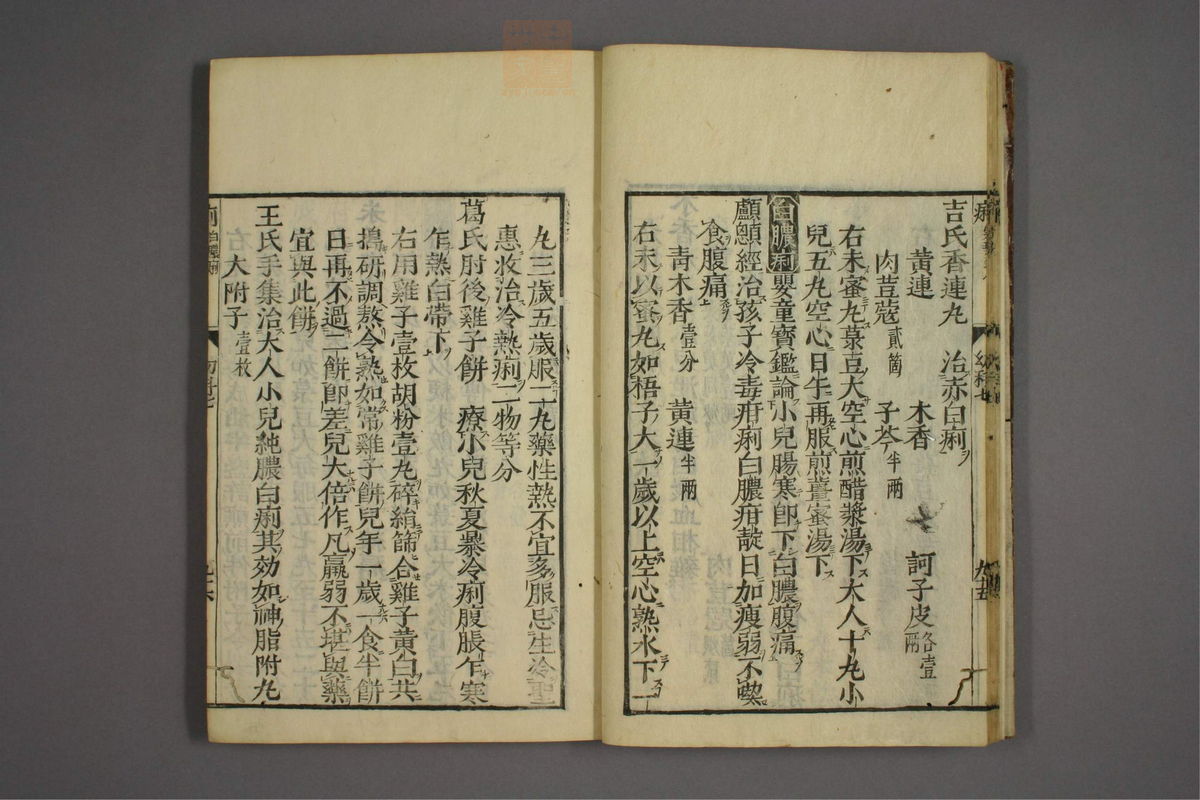 吉氏香連丸 治赤白痢
黄連 木香 訶子皮各壹兩
肉荳蔻貳箇 子芩半兩
右末蜜丸菉豆大空心煎醋漿湯下大人十丸小
兒五丸空心日午再服煎薑蜜湯下
白膿痢 嬰童寶鑑論小兒腸寒卽下白膿腹痛
顱顖經治孩子冷毒疳痢白膿疳㵝日加瘦弱不喫
食腹痛
青木香壹分 黄連半兩
右末以蜜丸如梧子大一歲以上空心熟水下一
丸三歲五歲服十丸藥性熱不宜多服忌生冷聖
惠救治冷熱痢二物等分
葛氏肘後雞子餅 療小兒秋夏暴冷痢腹脹乍寒
乍熱白帶下
右用雞子壹枚胡粉壹丸碎絹篩合雞子黄白共
搗研調熬令熟如常雞子餅兒年一歲一食半餅
日再不過二餅卽差兒大倍作凡羸弱不堪與藥
宜與此餅
王氏手集治大人小兒純膿白痢其効如神脂附丸
大附子壹枚